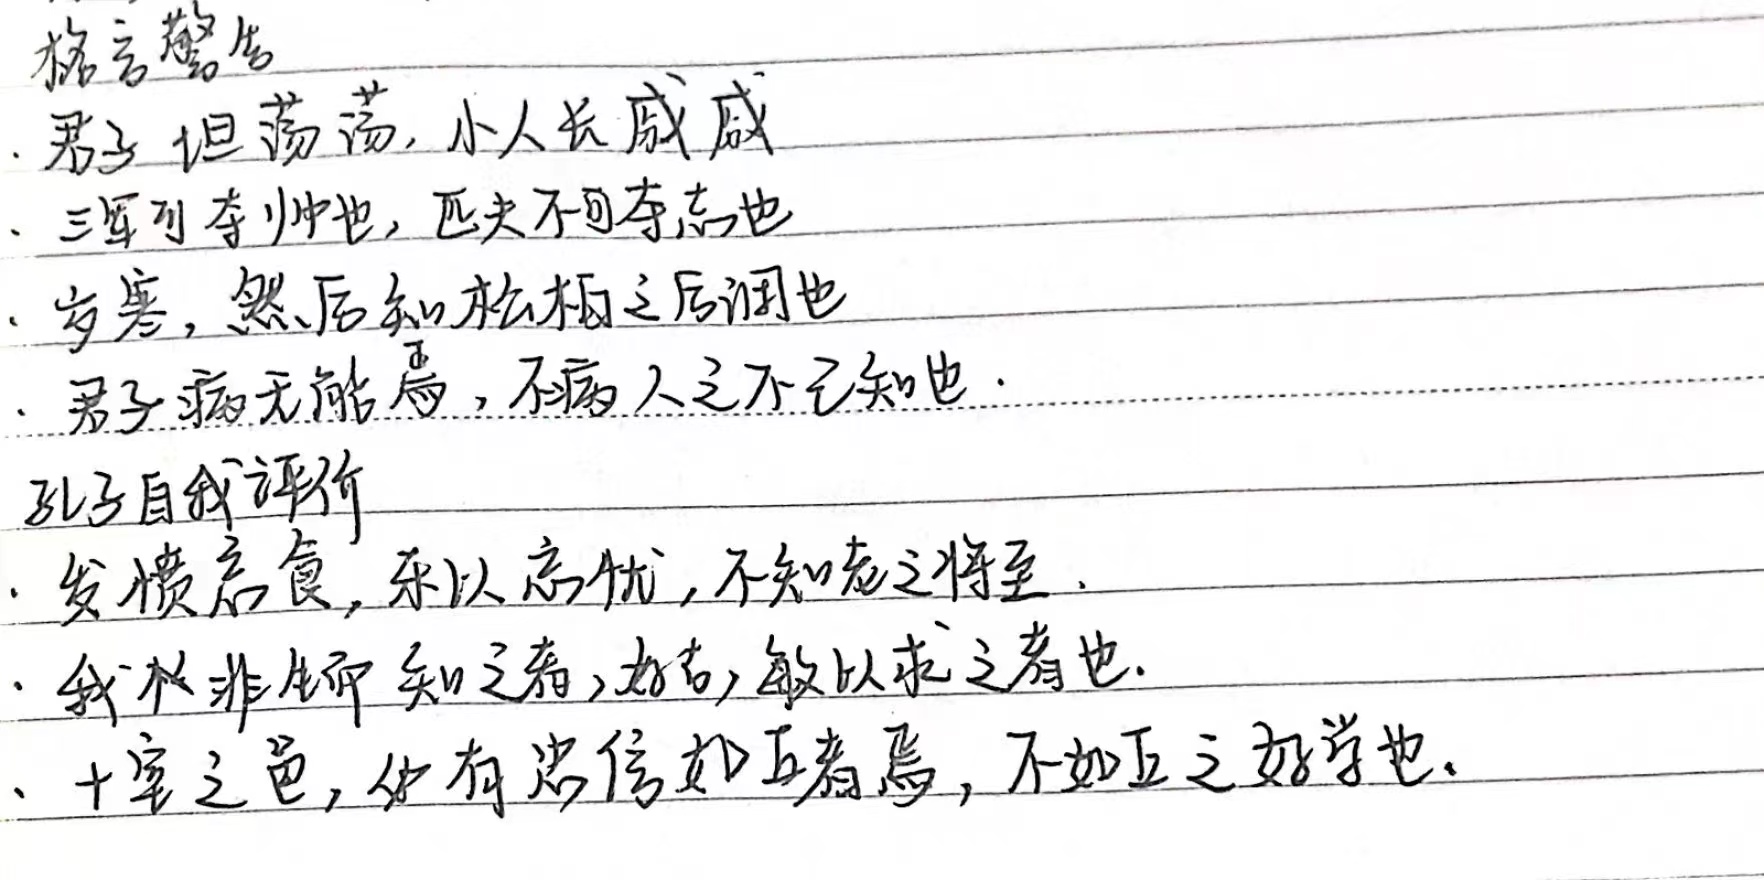 格言警告
· 君子坦荡荡，小人长戚戚
· 三军可夺帅也，匹夫不可夺志也
· 岁寒，然后知松柏之后凋也
· 君子病无能焉，不病人之不己知也．
孔子自我评价
· 发愤忘食，乐以忘忧，不知老之将至．
· 我非生而知之者，好古，敏以求之者也．
· 十室之邑，必有忠信如丘者焉，不如丘之好学也．